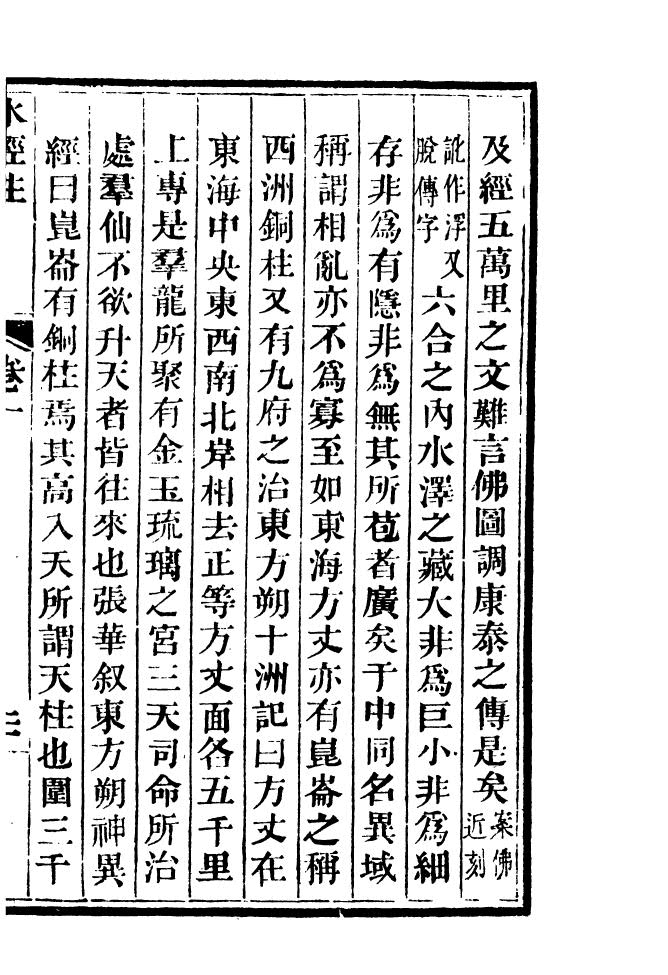 及經五萬里之文難言佛圖調康泰之傳是矣案佛近刻
訛作浮又脫傳字六合之內水澤之藏大非爲巨小非爲細
存非爲有隱非爲無其所苞者廣矣于中同名異域
稱謂相亂亦不爲寡至如東海方丈亦有崑崙之稱
西洲銅柱又有九府之治東方朔十洲記曰方丈在
東海中央東西南北岸相去正等方丈面各五千里
上專是羣龍所聚有金玉琉璃之宮三天司命所治
處羣仙不欲升天者皆往來也張華叙東方朔神異
經曰崑崙有銅柱焉其高入天所謂天柱也圍三千
水經注 卷一